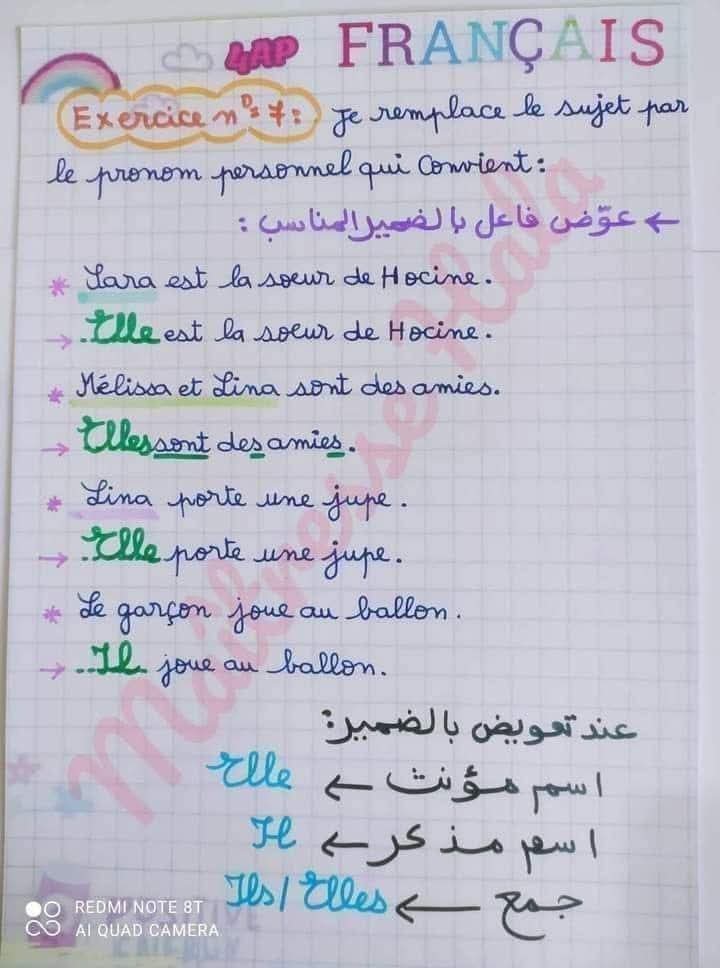 4AP FRANÇAIS
Exercice n°= 7 : Je remplace le sujet par
le pronom personnel qui convient :
← عوّض فاعل بالضمير المناسب :
* Sara est la soeur de Hocine.
→ ..Elle est la soeur de Hocine.
* Mélissa et Lina sont des amies.
→ Elles sont des amies.
* Lina porte une jupe.
→ ..Elle porte une jupe.
* Le garçon joue au ballon.
→ ...Il. joue au ballon.
عند تعويض بالضمير:
اسم مؤنث ← Elle
اسم مذكر ← Il
جمع ← Ils / Elles
Maîtresse Hala
REDMI NOTE 8T
AI QUAD CAMERA